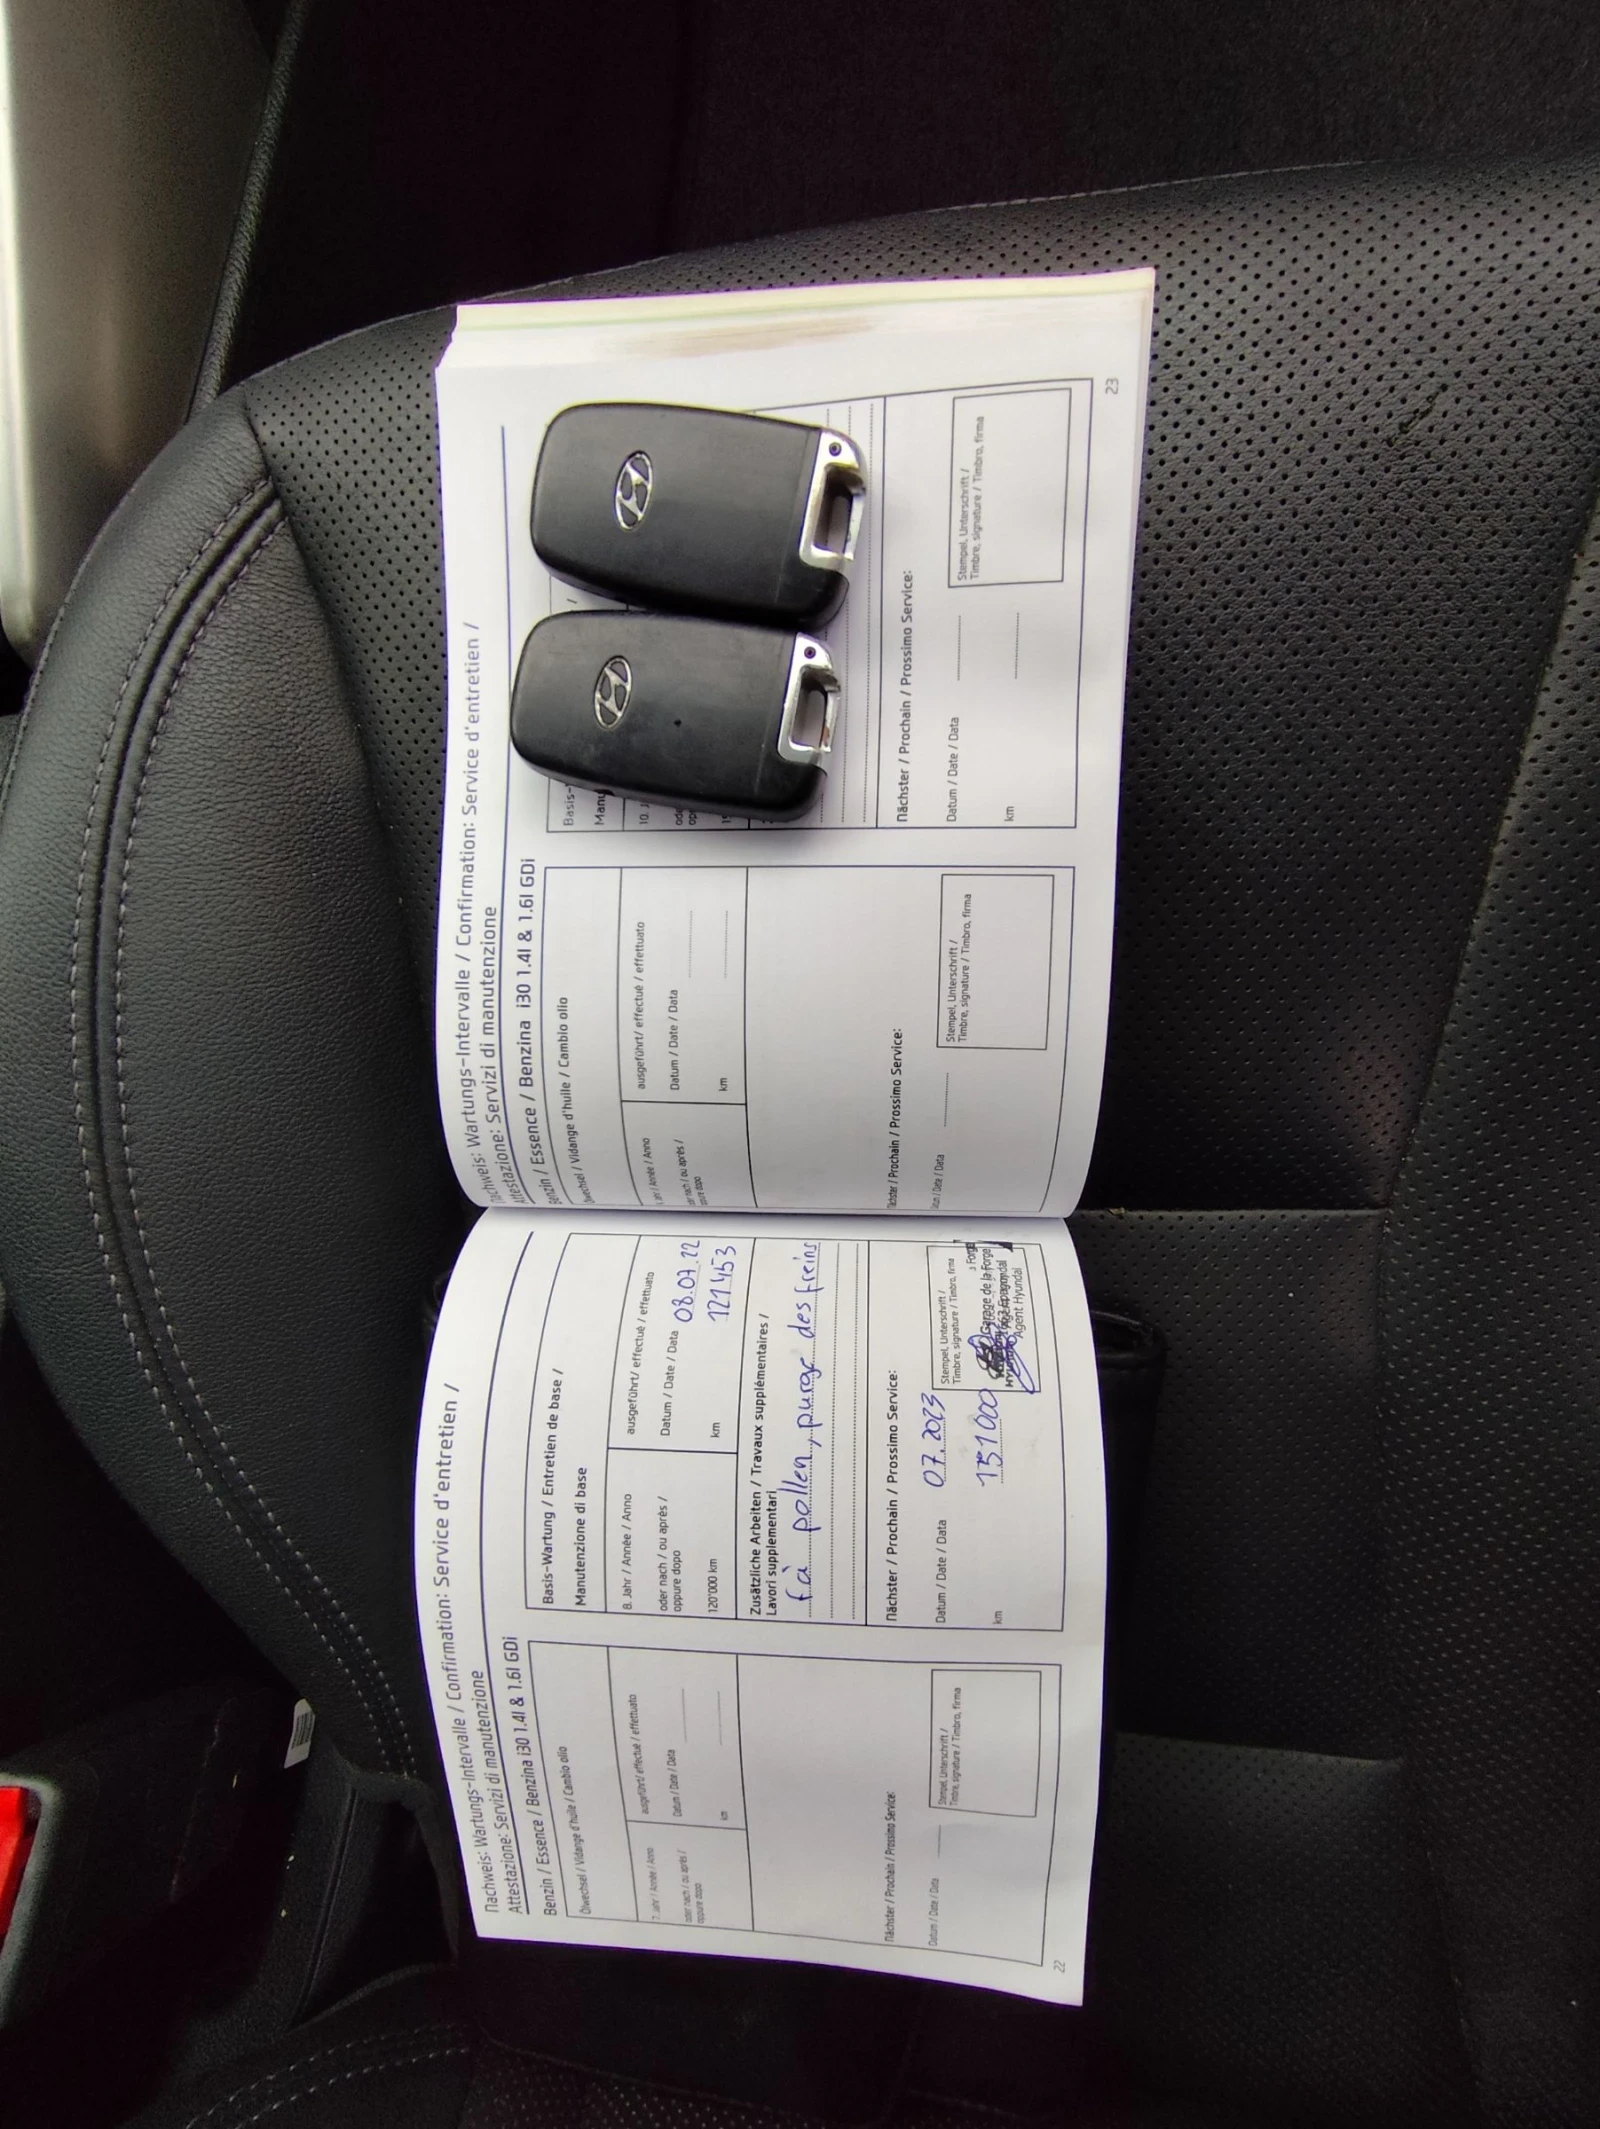 Nachweis: Wartungs-Intervalle / Confirmation: Service d'entretien /
Attestazione: Servizi di manutenzione
Benzin / Essence / Benzina i30 1.4l & 1.6l GDi
Ölwechsel / Vidange d'huile / Cambio olio
7. Jahr / Année / Anno
oder nach / ou après /
oppure dopo
ausgeführt/ effectué / effettuato
Datum / Date / Data
km
Nächster / Prochain / Prossimo Service:
Datum / Date / Data
Stempel, Unterschrift /
Timbre, signature / Timbro, firma
22
Basis-Wartung / Entretien de base /
Manutenzione di base
8. Jahr / Année / Anno
oder nach / ou après /
oppure dopo
120'000 km
ausgeführt/ effectué / effettuato
Datum / Date / Data 08.07.22
km 121453
Zusätzliche Arbeiten / Travaux supplémentaires /
Lavori supplementari
fà pollen, purge des freins
Nächster / Prochain / Prossimo Service:
Datum / Date / Data 07.2023
km 151000
Stempel, Unterschrift /
Timbre, signature / Timbro, firma
Garage de la Forge
Agent Hyundai
Nachweis: Wartungs-Intervalle / Confirmation: Service d'entretien /
Attestazione: Servizi di manutenzione
Benzin / Essence / Benzina i30 1.4l & 1.6l GDi
Ölwechsel / Vidange d'huile / Cambio olio
Jahr / Année / Anno
oder nach / ou après /
oppure dopo
ausgeführt/ effectué / effettuato
Datum / Date / Data
km
Nächster / Prochain / Prossimo Service:
Datum / Date / Data
Stempel, Unterschrift /
Timbre, signature / Timbro, firma
Basis-
Manu
10. J
ode
opp
Nächster / Prochain / Prossimo Service:
Datum / Date / Data
km
Stempel, Unterschrift /
Timbre, signature / Timbro, firma
23